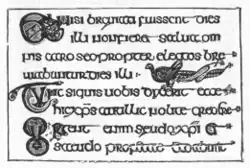 Et nisi breuiati fuissent dies
illi non fiera salua om
nis caro sed propter electos bre
uiabuntur dies illi :
Tunc si quis uobis dixerit ecce
hic xps aut illic nolite credere
enim seudo xpi
seudo